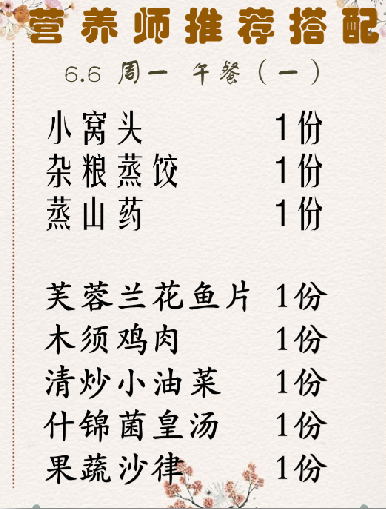 营养师推荐搭配
6.6 周一 午餐（一）
小窝头 1份
杂粮蒸饺 1份
蒸山药 1份
芙蓉兰花鱼片 1份
木须鸡肉 1份
清炒小油菜 1份
什锦菌皇汤 1份
果蔬沙律 1份